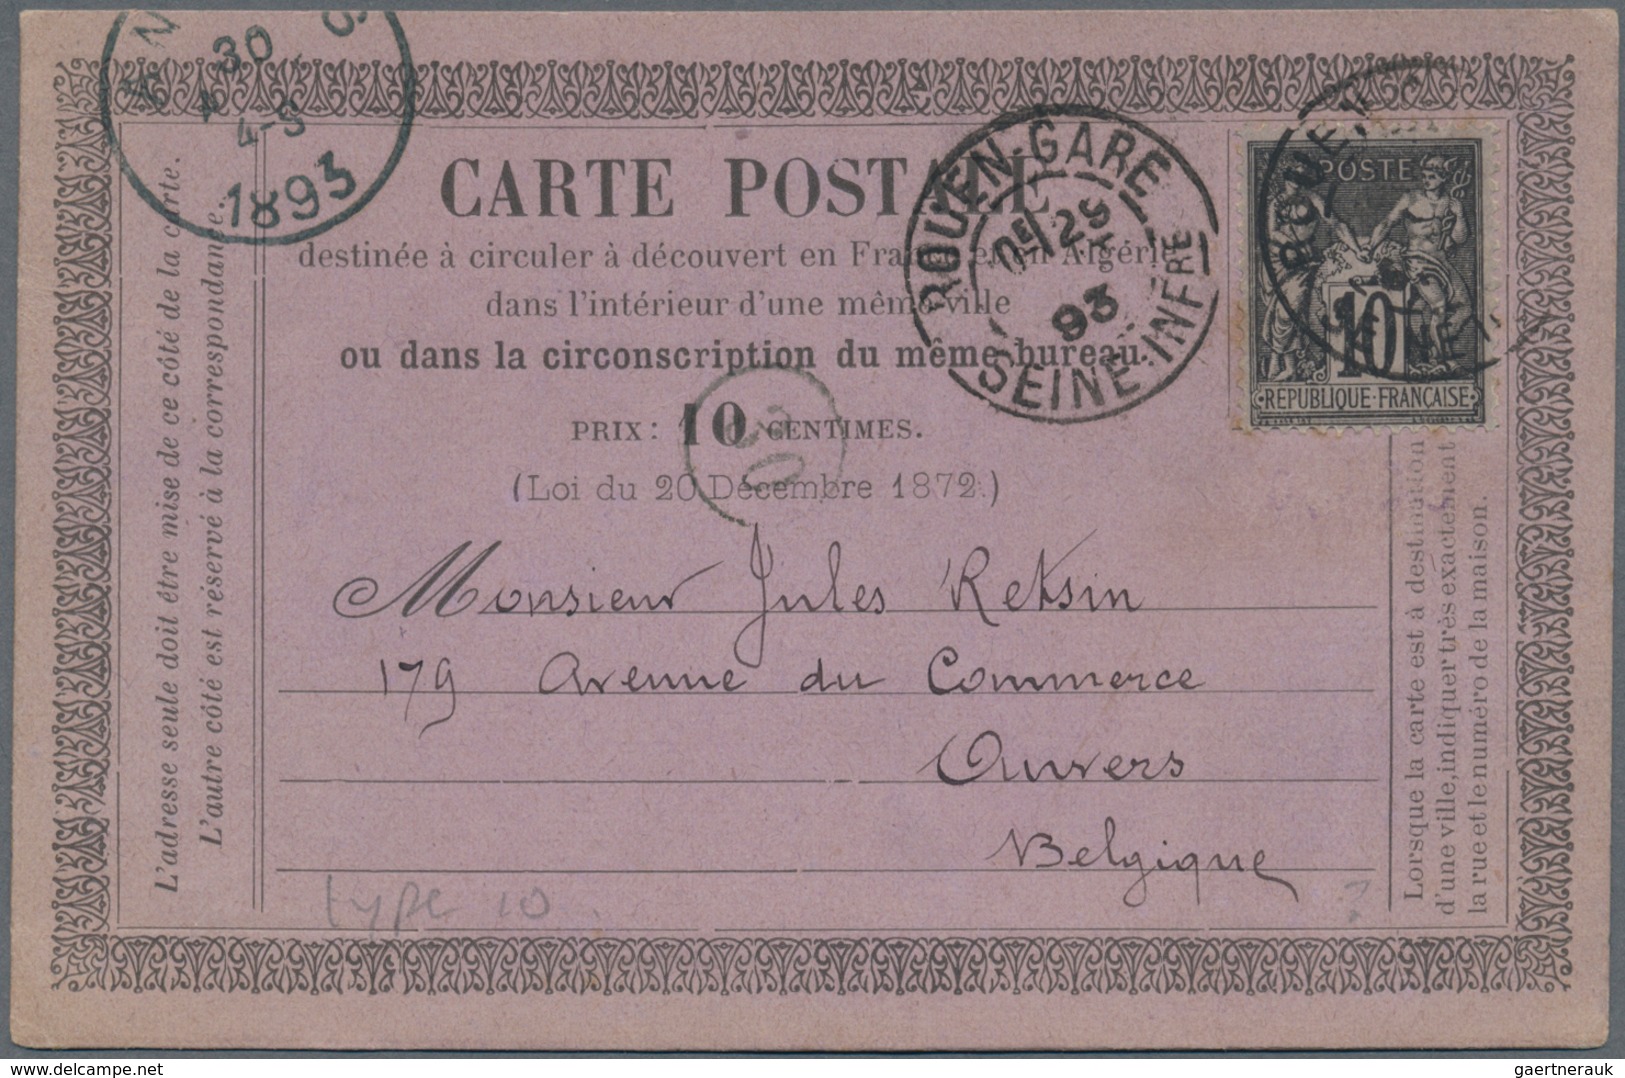 30
4-S
1893
CARTE POSTALE
destinée à circuler à découvert en France et en Algérie
dans l'intérieur d'une même ville
ou dans la circonscription du même bureau.
PRIX: 10 CENTIMES.
(Loi du 20 Décembre 1872.)
ROUEN-GARE
29
93
SEINE-INFRE
POSTE
10
REPUBLIQUE-FRANÇAISE
L'adresse seule doit être mise de ce côté de la carte.
L'autre côté est réservé à la correspondance.
Monsieur Jules Retsin
179 Avenue du Commerce
Anvers
Belgique
type 10
?
Lorsque la carte est à destination
d'une ville, indiquer très exactement
la rue et le numéro de la maison.
gaertnerauk